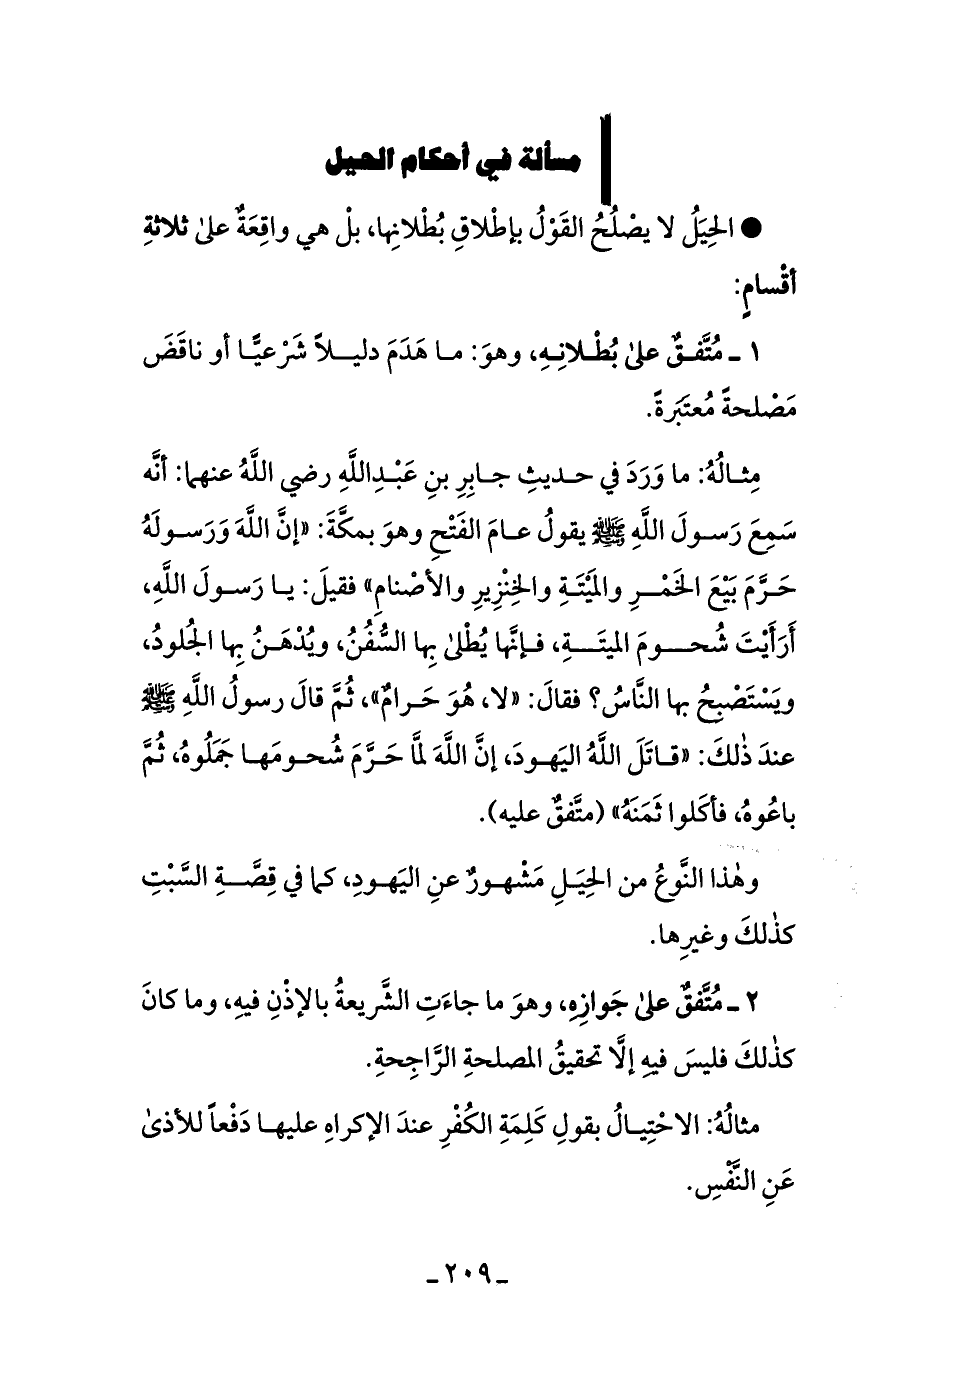 مسألة في أحكام الحيل
● الحِيَلُ لا يصْلُحُ القَوْلُ بإطْلاقِ بُطْلانِها، بلْ هي واقِعَةٌ علىٰ ثلاثةِ
أقْسامٍ:
١ ـ مُتَّفـقٌ علىٰ بُطْـلانِـهِ، وهوَ: مـا هَدَمَ دليـلاً شَرْعيًّـا أو ناقَضَ
مَصْلحةً مُعتبَرةً.
مِثـالُهُ: ما وَرَدَ في حـديثِ جـابِرِ بنِ عَبْـدِاللَّهِ رضي اللَّهُ عنهما: أنَّه
سَمِعَ رَسـولَ اللَّهِ ﷺ يقولُ عـامَ الفَتْحِ وهوَ بمكَّةَ: «إنَّ اللَّهَ وَرَسـولَهُ
حَـرَّمَ بَيْعَ الخَمْـرِ والمَيْتَـةِ والخِنْزِيرِ والأصْنامِ» فقيلَ: يـا رَسـولَ اللَّهِ،
أرَأيْتَ شُحـومَ الميتَـةِ، فـإنَّها يُطْلىٰ بِها السُّفُنُ، ويُدْهَـنُ بِها الجُلودُ،
ويَسْتَصْبِحُ بها النَّاسُ؟ فقالَ: «لا، هُوَ حَـرامٌ»، ثُمَّ قالَ رسولُ اللَّهِ ﷺ
عندَ ذٰلكَ: «قـاتَلَ اللَّهُ اليَهـودَ، إنَّ اللَّهَ لمَّا حَـرَّمَ شُحـومَهـا جَمَلُوهُ، ثُمَّ
باعُوهُ، فأكَلوا ثَمَنَهُ» (متَّفقٌ عليه).
وهٰذا النَّوْعُ من الحِيَـلِ مَشْهـورٌ عنِ اليَهـودِ، كما في قِصَّـةِ السَّبْتِ
كذٰلكَ وغيرِها.
٢ ـ مُتَّفقٌ علىٰ جَوازِهِ، وهوَ ما جاءَتِ الشَّريعةُ بالإذْنِ فيهِ، وما كانَ
كذٰلكَ فليسَ فيهِ إلَّا تحقيقُ المصلحةِ الرَّاجِحةِ.
مثالُهُ: الاحْتِيـالُ بقولِ كَلِمَةِ الكُفْرِ عندَ الإكراهِ عليهـا دَفْعاً للأذىٰ
عَنِ النَّفْسِ.
ـ ٢٠٩ ـ